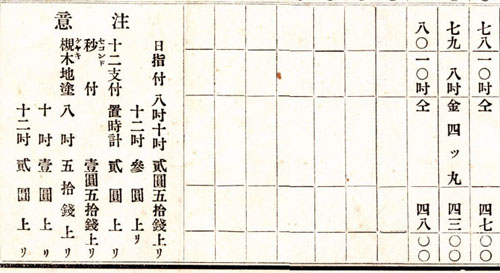 七八 一〇吋仝 四七〇〇
七九 八吋金四ツ丸 四三〇〇
八〇 一〇吋仝 四八〇〇
注意
日指付 八吋十吋 貳圓五拾錢上リ
十二吋 參圓上リ
十二支付置時計 貳圓上リ
セコンド
秒付 壹圓五拾錢上リ
ケヤキ
槻木地塗 八吋 五拾錢上リ
十吋 壹圓上リ
十二吋 貳圓上リ